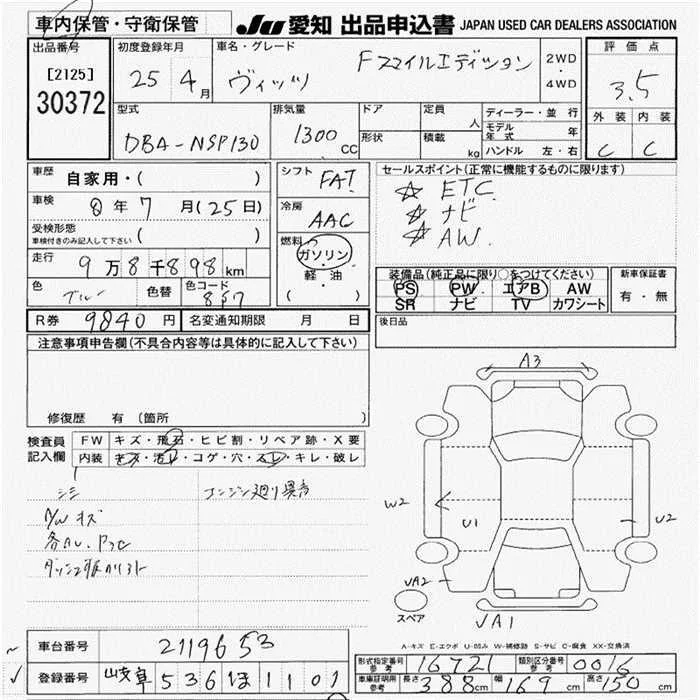 車内保管・守衛保管 JU 愛知 出品申込書 JAPAN USED CAR DEALERS ASSOCIATION
出品番号 初度登録年月 車名・グレード 評価点
[2125] 25 4月 ヴィッツ Fスマイルエディション 2WD・4WD 3.5
30372
型式 排気量 ドア 定員 人 ディーラー・並行 外装 内装
DBA-NSP130 1300cc 形状 積載 kg モデル年式 年 C C
ハンドル 左・右
車歴 自家用・( ) シフト FAT セールスポイント(正常に機能するものに限ります)
車検 8年7月(25日) 冷房 AAC ☆ ETC
受検形態 ☆ ナビ
車検付きのみ記入して下さい ( ) ☆ AW.
走行 9万8千898km 燃料 ガソリン・軽油 ( )
色 ブルー 色替 色コード 8
装備品(純正品に限り○をつけてください) 新車保証書
PS PW エアB AW 有・無
SR ナビ TV カワシート
R券 9840円 名変通知期限 月 日 後日品
注意事項申告欄(不具合内容等は具体的に記入して下さい)
修復歴 有(箇所 )
検査員記入欄 FW キズ・飛石・ヒビ割・リペア跡・X要
内装 キズ・汚れ・コゲ・穴・スレ・キレ・破レ
シミ エンジン廻り異音
A/Wキズ
A3
W2 U1 U2
UA2
スペア UA1
A-キズ E-エクボ U-凹み W-補修跡 S-サビ C-腐食 XX-交換済
車台番号 2119653
登録番号 岐阜 536 ほ 1101
形式指定番号 参考 16721 類別区分番号 参考 0016
車庫証明用 参考 長さ 388cm 幅 169cm 高さ 150cm